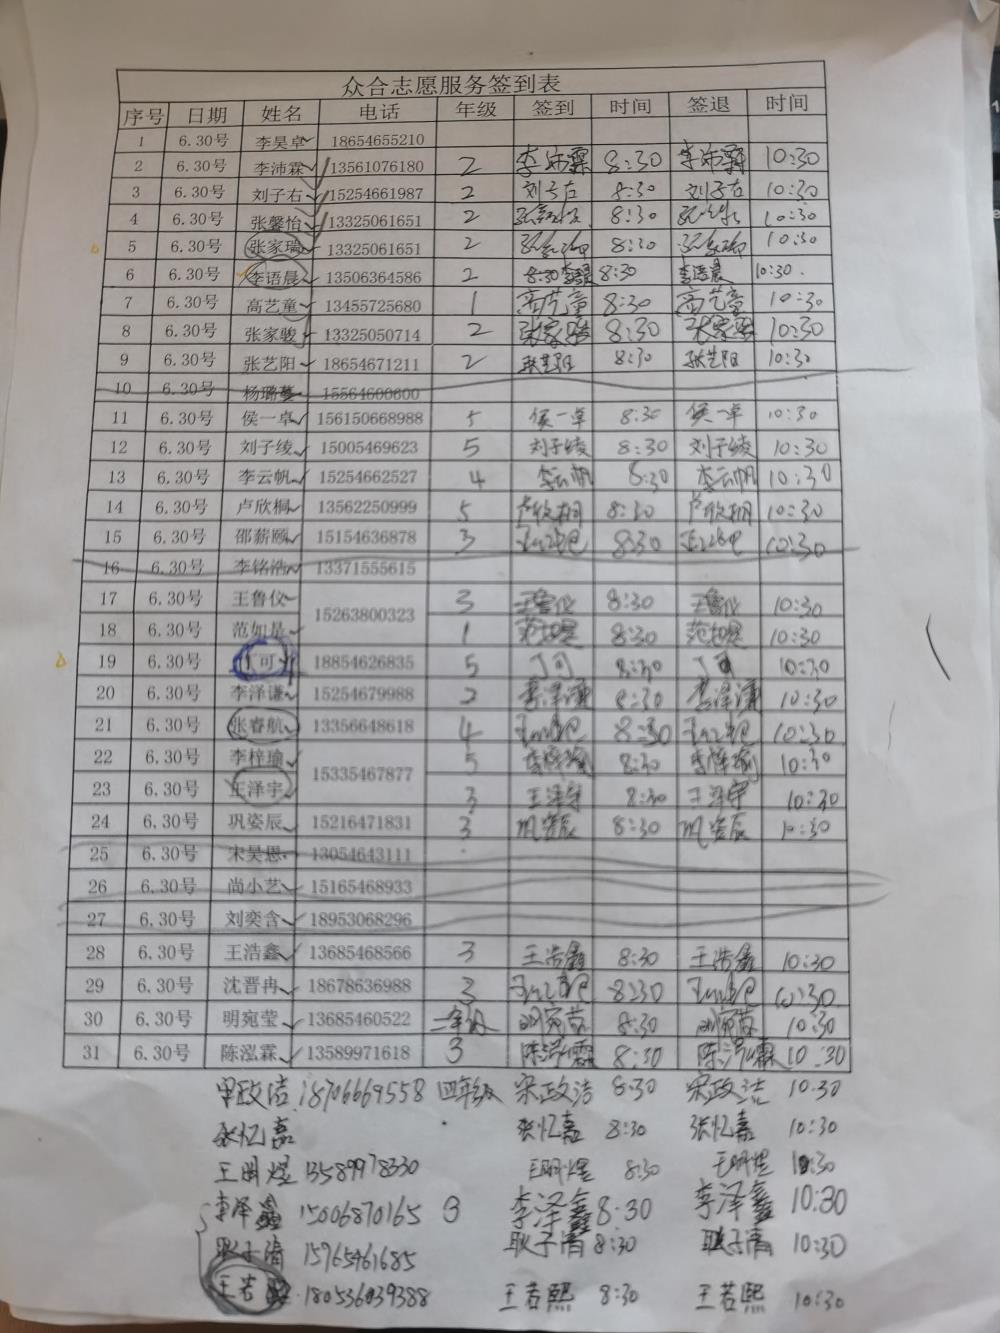 众合志愿服务签到表
序号 日期 姓名 电话 年级 签到 时间 签退 时间
1 6.30号 李昊卓 18654655210
2 6.30号 李沛霖 13561076180 2 李沛霖 8:30 李沛霖 10:30
3 6.30号 刘子右 15254661987 2 刘子右 8:30 刘子右 10:30
4 6.30号 张馨怡 13325061651 2 8:30 10:30
5 6.30号 张家瑞 13325061651 2 8:30 10:30
6 6.30号 李语晨 13506364586 2 8:30 李语晨 10:30
7 6.30号 高艺童 13455725680 1 高艺童 8:30 高艺童 10:30
8 6.30号 张家骏 13325050714 2 张家骏 8:30 张家骏 10:30
9 6.30号 张艺阳 18654671211 2 张艺阳 8:30 张艺阳 10:30
10 6.30号 杨璐蔓 15564600600
11 6.30号 侯一卓 156150668988 5 侯一卓 8:30 侯一卓 10:30
12 6.30号 刘子绫 15005469623 5 刘子绫 8:30 刘子绫 10:30
13 6.30号 李云帆 15254662527 4 李云帆 8:30 李云帆 10:30
14 6.30号 卢欣桐 13562250999 5 卢欣桐 8:30 卢欣桐 10:30
15 6.30号 邵薪颐 15154636878 3 8:30 10:30
16 6.30号 李铭浩 13371555615
17 6.30号 王鲁仪 15263800323 3 王鲁仪 8:30 王鲁仪 10:30
18 6.30号 范如是 1 范如是 8:30 范如是 10:30
19 6.30号 丁可 18854626835 5 丁可 8:30 丁可 10:30
20 6.30号 李泽谦 15254679988 2 李泽谦 8:30 李泽谦 10:30
21 6.30号 张睿航 13356648618 4 8:30 10:30
22 6.30号 李梓瑜 15335467877 5 李梓瑜 8:30 李梓瑜 10:30
23 6.30号 王泽宇 3 王泽宇 8:30 王泽宇 10:30
24 6.30号 巩姿辰 15216471831 3 巩姿辰 8:30 巩姿辰 10:30
25 6.30号 宋昊恩 13054643111
26 6.30号 尚小艺 15165468933
27 6.30号 刘奕含 18953068296
28 6.30号 王浩鑫 13685468566 3 王浩鑫 8:30 王浩鑫 10:30
29 6.30号 沈晋冉 18678636988 3 8:30 10:30
30 6.30号 明宛莹 13685460522 二年级 明宛莹 8:30 明宛莹 10:30
31 6.30号 陈泓霖 13589971618 3 陈泓霖 8:30 陈泓霖 10:30
政洁 18706669558 四年级 宋政洁 8:30 宋政洁 10:30
张忆嘉 张忆嘉 8:30 张忆嘉 10:30
王明煜 13589978330 王明煜 8:30 王明煜 10:30
李泽鑫 15006870165 3 李泽鑫 8:30 李泽鑫 10:30
耿子清 15965461685 耿子清 8:30 耿子清 10:30
王若熙 18053639388 王若熙 8:30 王若熙 10:30